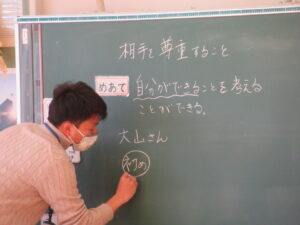 相手を尊重すること
めあて 自分ができることを考える
ことができる。
大山さん
初め